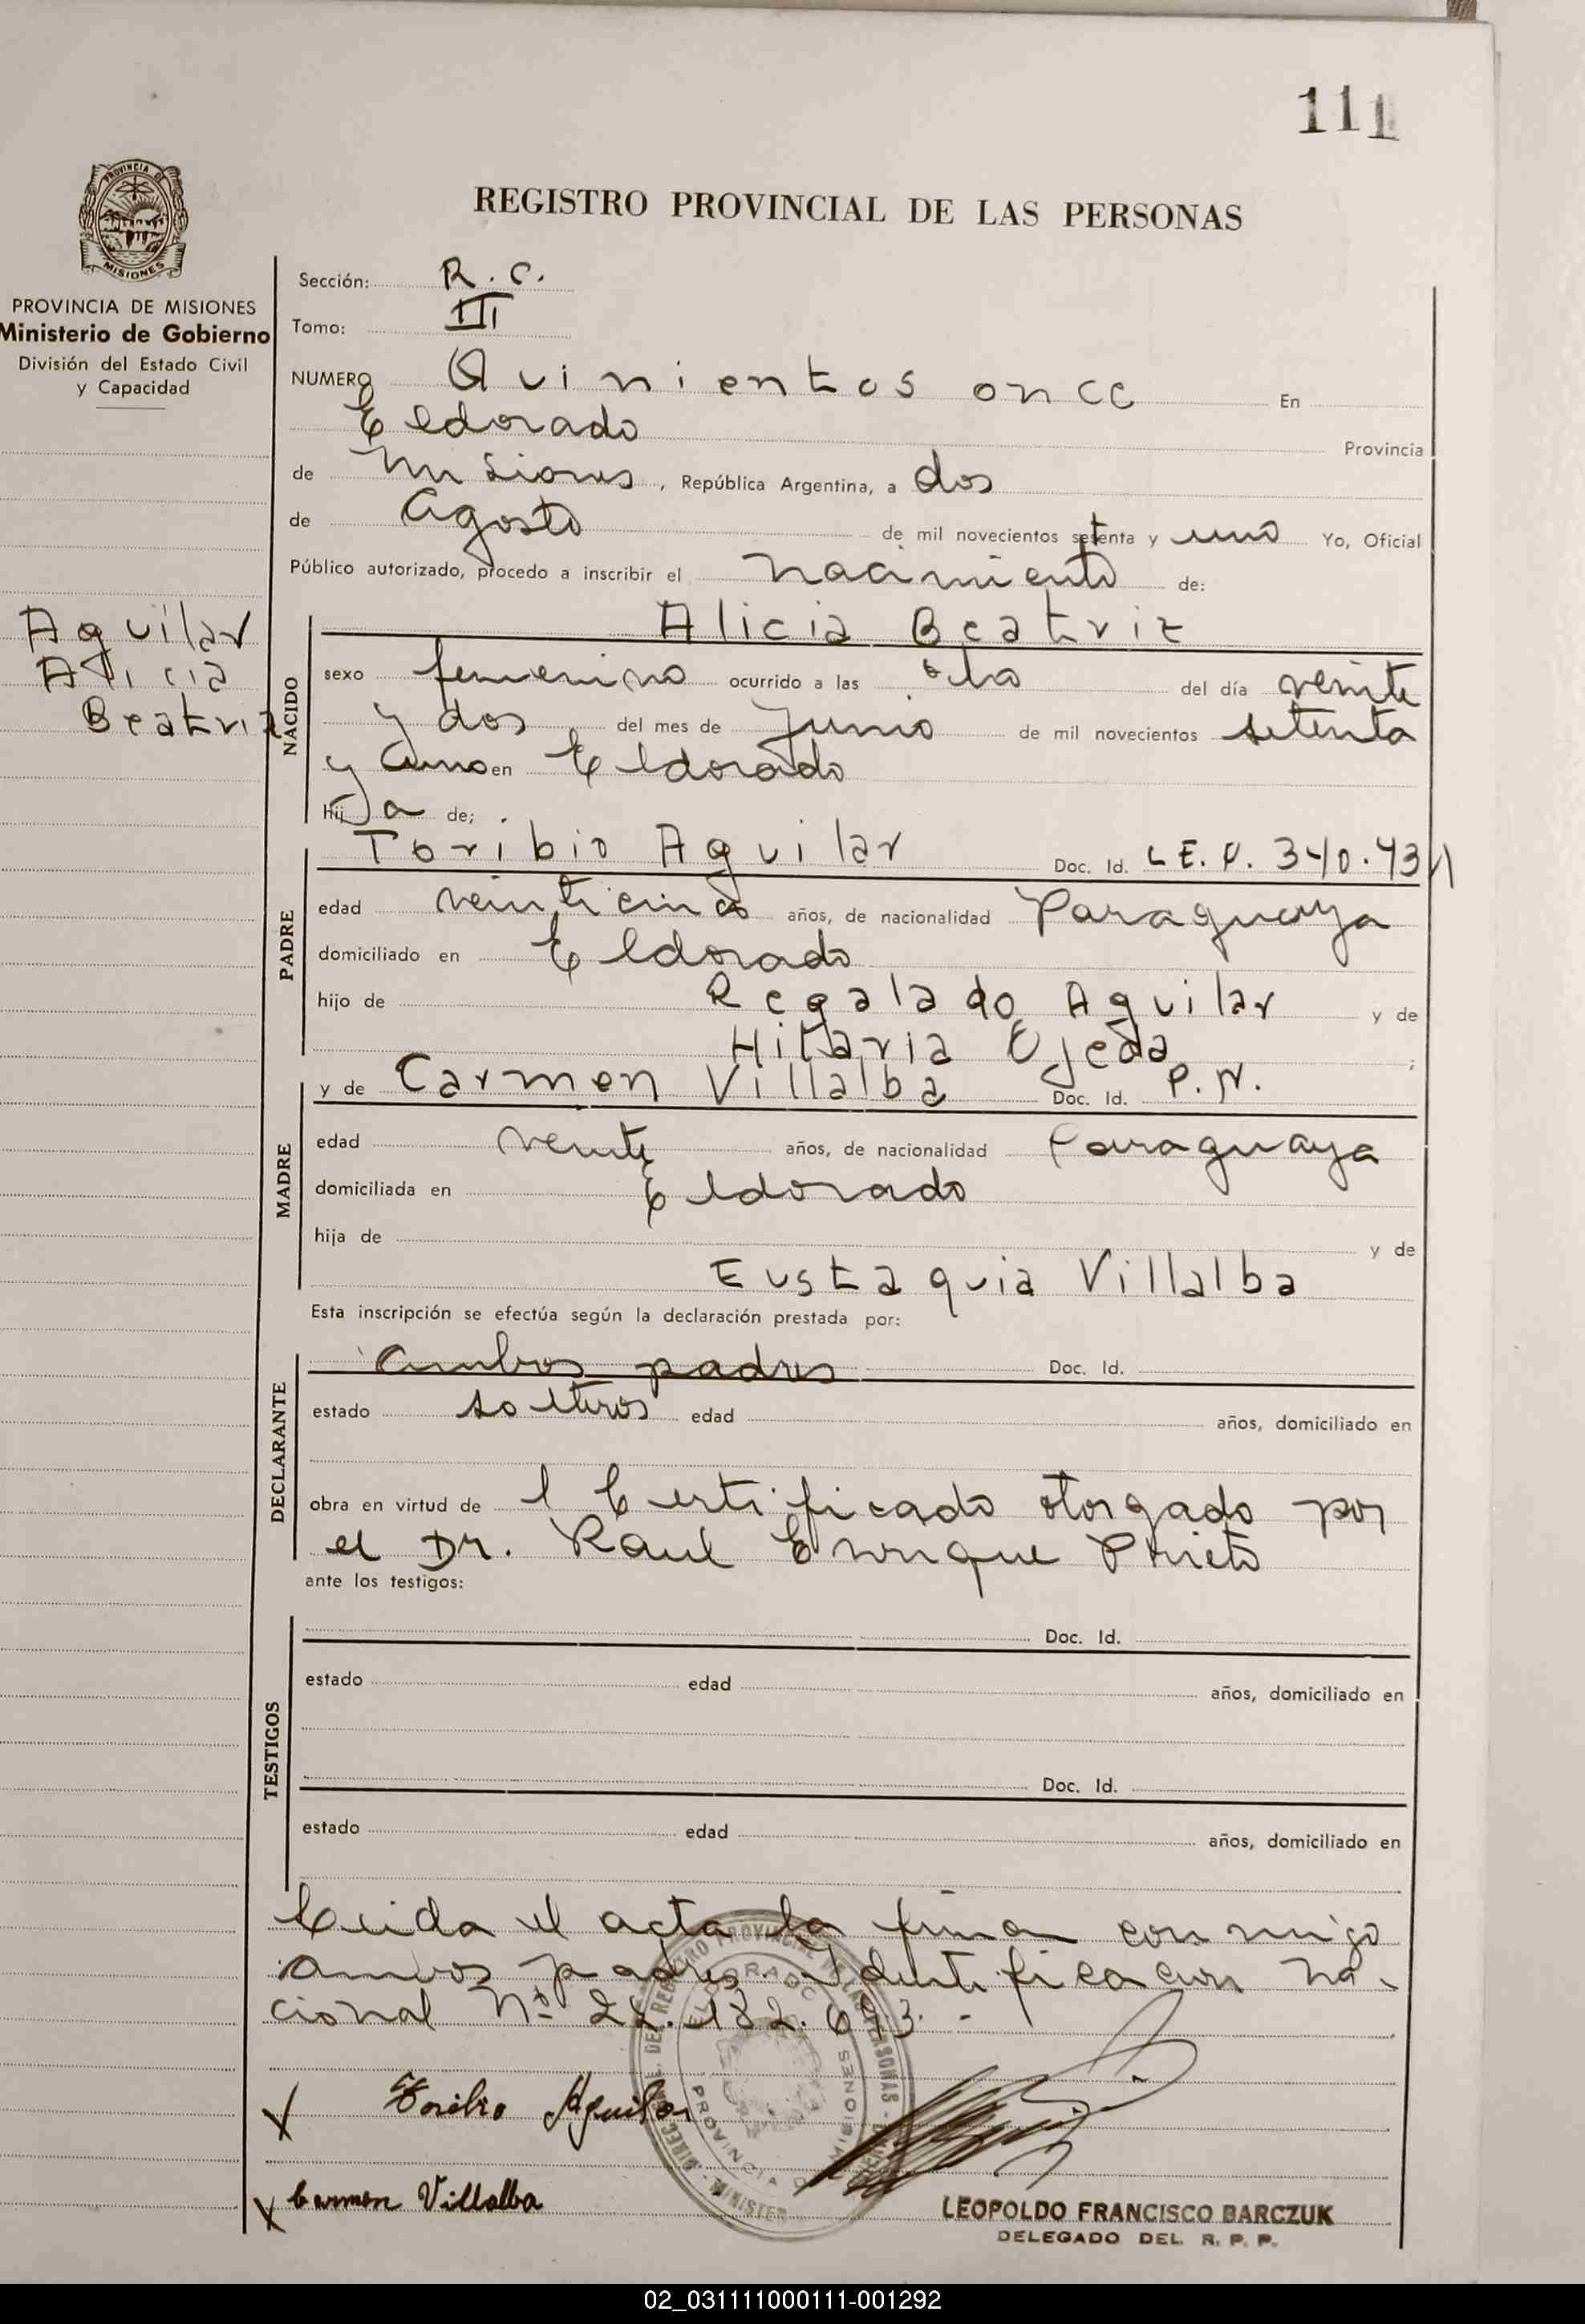 111
PROVINCIA DE
MISIONES
REGISTRO PROVINCIAL DE LAS PERSONAS
PROVINCIA DE MISIONES
Ministerio de Gobierno
División del Estado Civil
y Capacidad
Sección: R. C.
Tomo: III
NUMERO Quinientos once En
Eldorado Provincia
de Misiones, República Argentina, a dos
de Agosto de mil novecientos setenta y uno Yo, Oficial
Público autorizado, procedo a inscribir el nacimiento de:
Aguilar
Alicia
Beatriz
NACIDO
Alicia Beatriz
sexo femenino ocurrido a las del día veinte
y dos del mes de Junio de mil novecientos setenta
y uno en Eldorado
hija de;
PADRE
Toribio Aguilar Doc. Id.
edad veinticinco años, de nacionalidad Paraguaya
domiciliado en Eldorado
hijo de Regalado Aguilar y de
Hilaria Ojeda ;
MADRE
y de Carmen Villalba Doc. Id. P. N.
edad veinte años, de nacionalidad Paraguaya
domiciliada en Eldorado
hija de y de
Eustaquia Villalba
Esta inscripción se efectúa según la declaración prestada por:
DECLARANTE
ambos padres Doc. Id.
estado solteros edad años, domiciliado en
obra en virtud de l Certificado otorgado por
el Dr. Raul Enrique Prieto
ante los testigos:
TESTIGOS
Doc. Id.
estado edad años, domiciliado en
Doc. Id.
estado edad años, domiciliado en
Leida el acta la firman conmigo
ambos padres. Identificacion Na-
cional Nº
ELDORADO
PROVINCIA DE MISIONES
Toribio Aguilar
Carmen Villalba
LEOPOLDO FRANCISCO BARCZUK
DELEGADO DEL R. P. P.
02_031111000111-001292